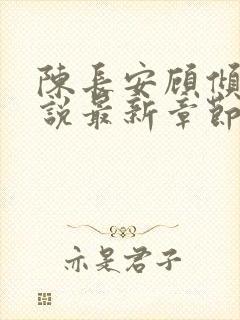 陳長安顧傾
說最新章節
亦是君子